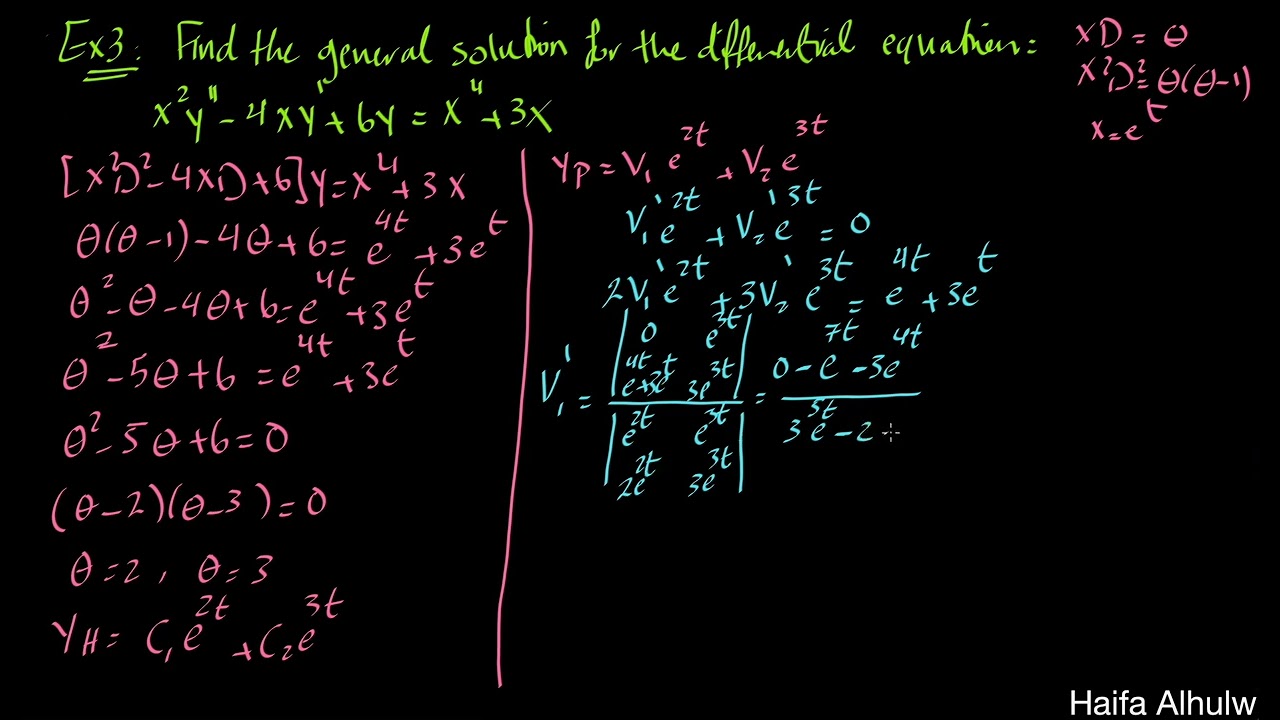 Ex3: Find the general solution for the differential equation:
x²y'' - 4xy' + 6y = x⁴ + 3x
xD = θ
x²D² = θ(θ-1)
x = e^t
[x²D² - 4xD + 6]y = x⁴ + 3x
θ(θ-1) - 4θ + 6 = e^4t + 3e^t
θ² - θ - 4θ + 6 = e^4t + 3e^t
θ² - 5θ + 6 = e^4t + 3e^t
θ² - 5θ + 6 = 0
(θ-2)(θ-3) = 0
θ = 2 , θ = 3
y_H = C₁e^2t + C₂e^3t
y_P = V₁e^2t + V₂e^3t
V₁'e^2t + V₂'e^3t = 0
2V₁'e^2t + 3V₂'e^3t = e^4t + 3e^t
V₁' = |0 e^3t
e^4t+3e^t 3e^3t| / |e^2t e^3t
2e^2t 3e^3t| = (0 - e^7t - 3e^4t) / (3e^5t - 2
Haifa Alhulw